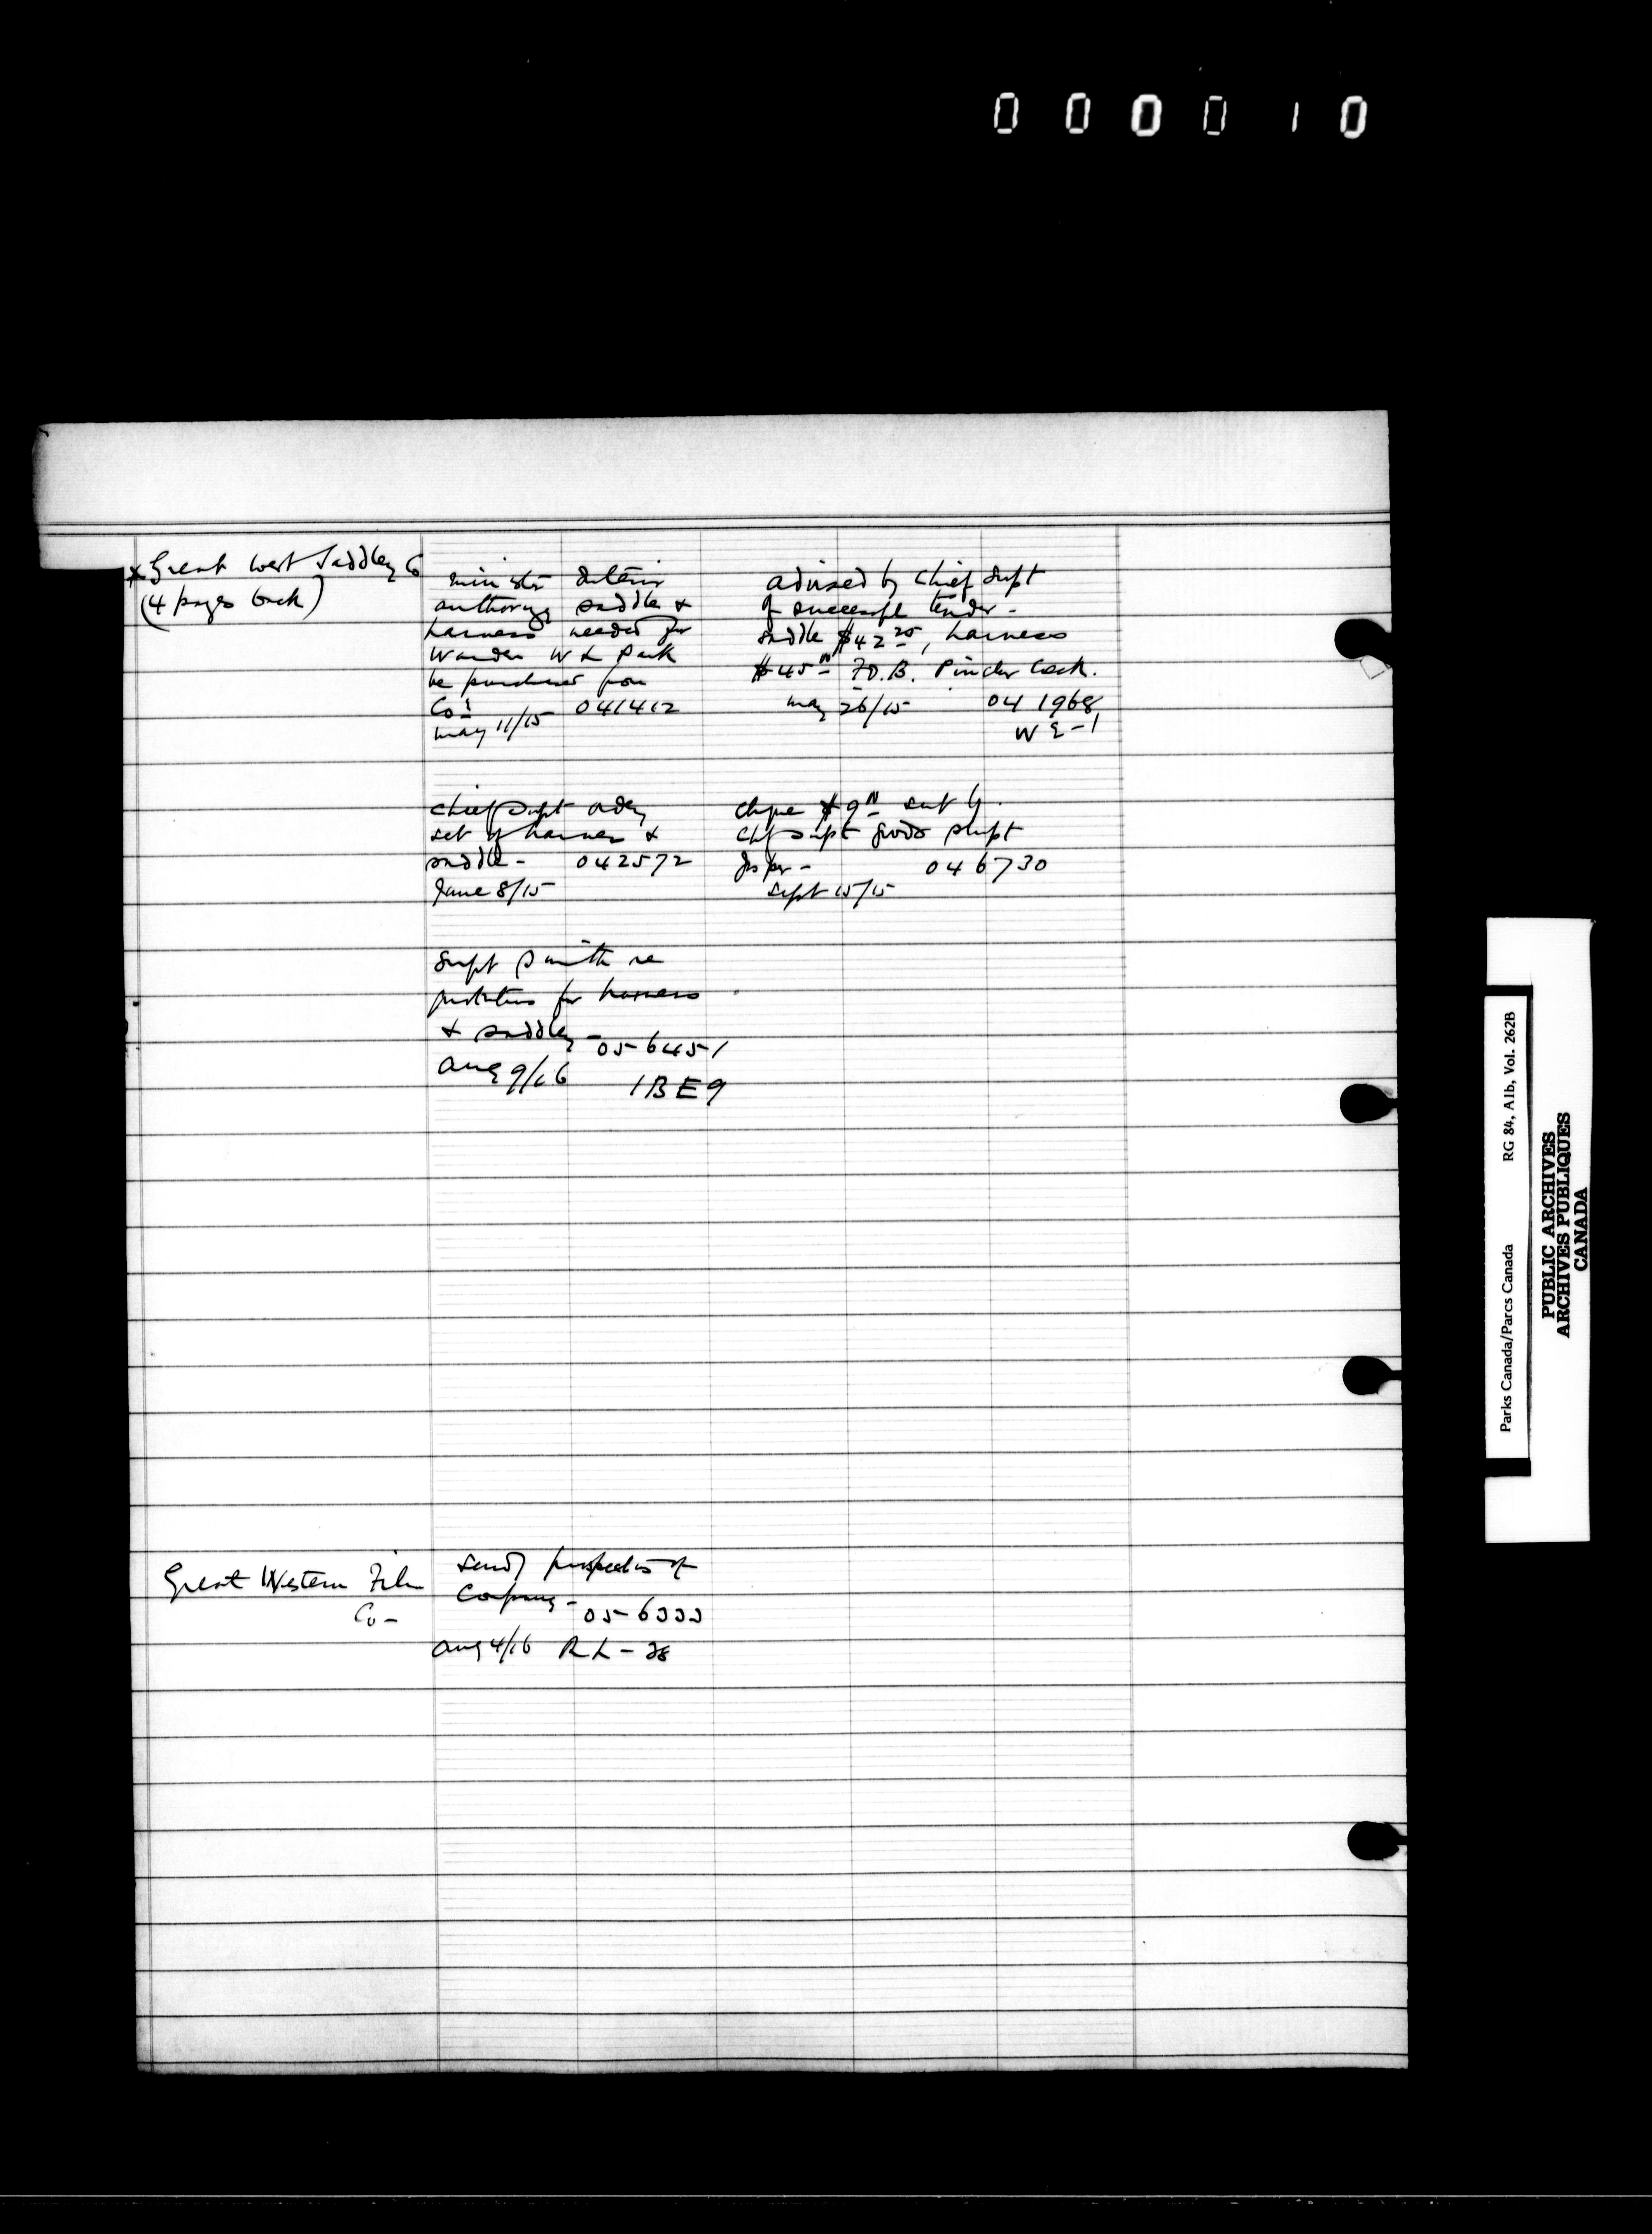 000010
x Great West Saddlery Co
(4 pages back)
minister Interior
authorizg saddle &
harness needed for
Warden W L Park
be purchased from
Co:
May 11/15 041412
advised by Chief Supt
of successfl tender -
saddle $42.25, harness
$45.00 F.O.B. Pincher Creek.
may 26/15 04 1968
W E-1
Chief Supt ordrg
set of harness &
saddle - 042572
June 8/15
cheque $9.00 sent by
Chf Supt goods shipt
Jasper - 046730
Sept 15/15
Supt Smith re
quotations for harness
& saddlery - 056451
Aug 9/16 1BE9
Great Western Film
Co -
Sendg prospectus of
Company - 056333
Aug 4/16 RL-28
Parks Canada/Parcs Canada RG 84, Alb, Vol. 262B
PUBLIC ARCHIVES
ARCHIVES PUBLIQUES
CANADA